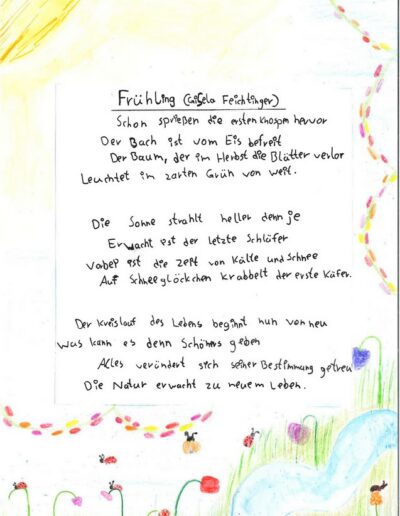 Frühling (Gisela Feichtinger)
Schon sprießen die ersten Knospen hervor
Der Bach ist vom Eis befreit
Der Baum, der im Herbst die Blätter verlor
Leuchtet im zarten Grün von weit.
Die Sonne strahlt heller denn je
Erwacht ist der letzte Schläfer
Vorbei ist die Zeit von Kälte und Schnee
Auf Schneeglöckchen krabbelt der erste Käfer.
Der Kreislauf des Lebens beginnt nun von neu
Was kann es denn Schöners geben
Alles verändert sich seiner Bestimmung getreu
Die Natur erwacht zu neuem Leben.